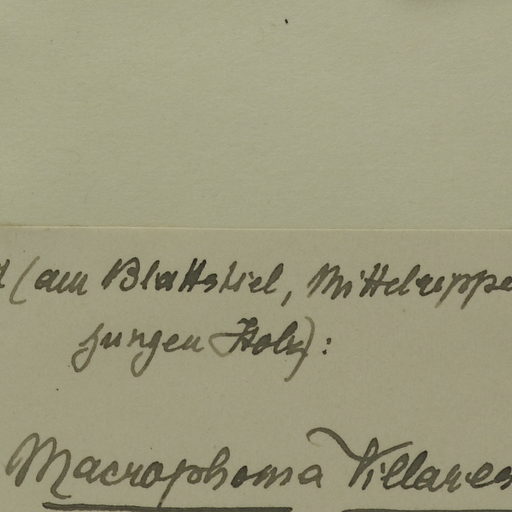 (am Blattstiel, Mittelrippe
jungen Holz):
Macrophoma Villares